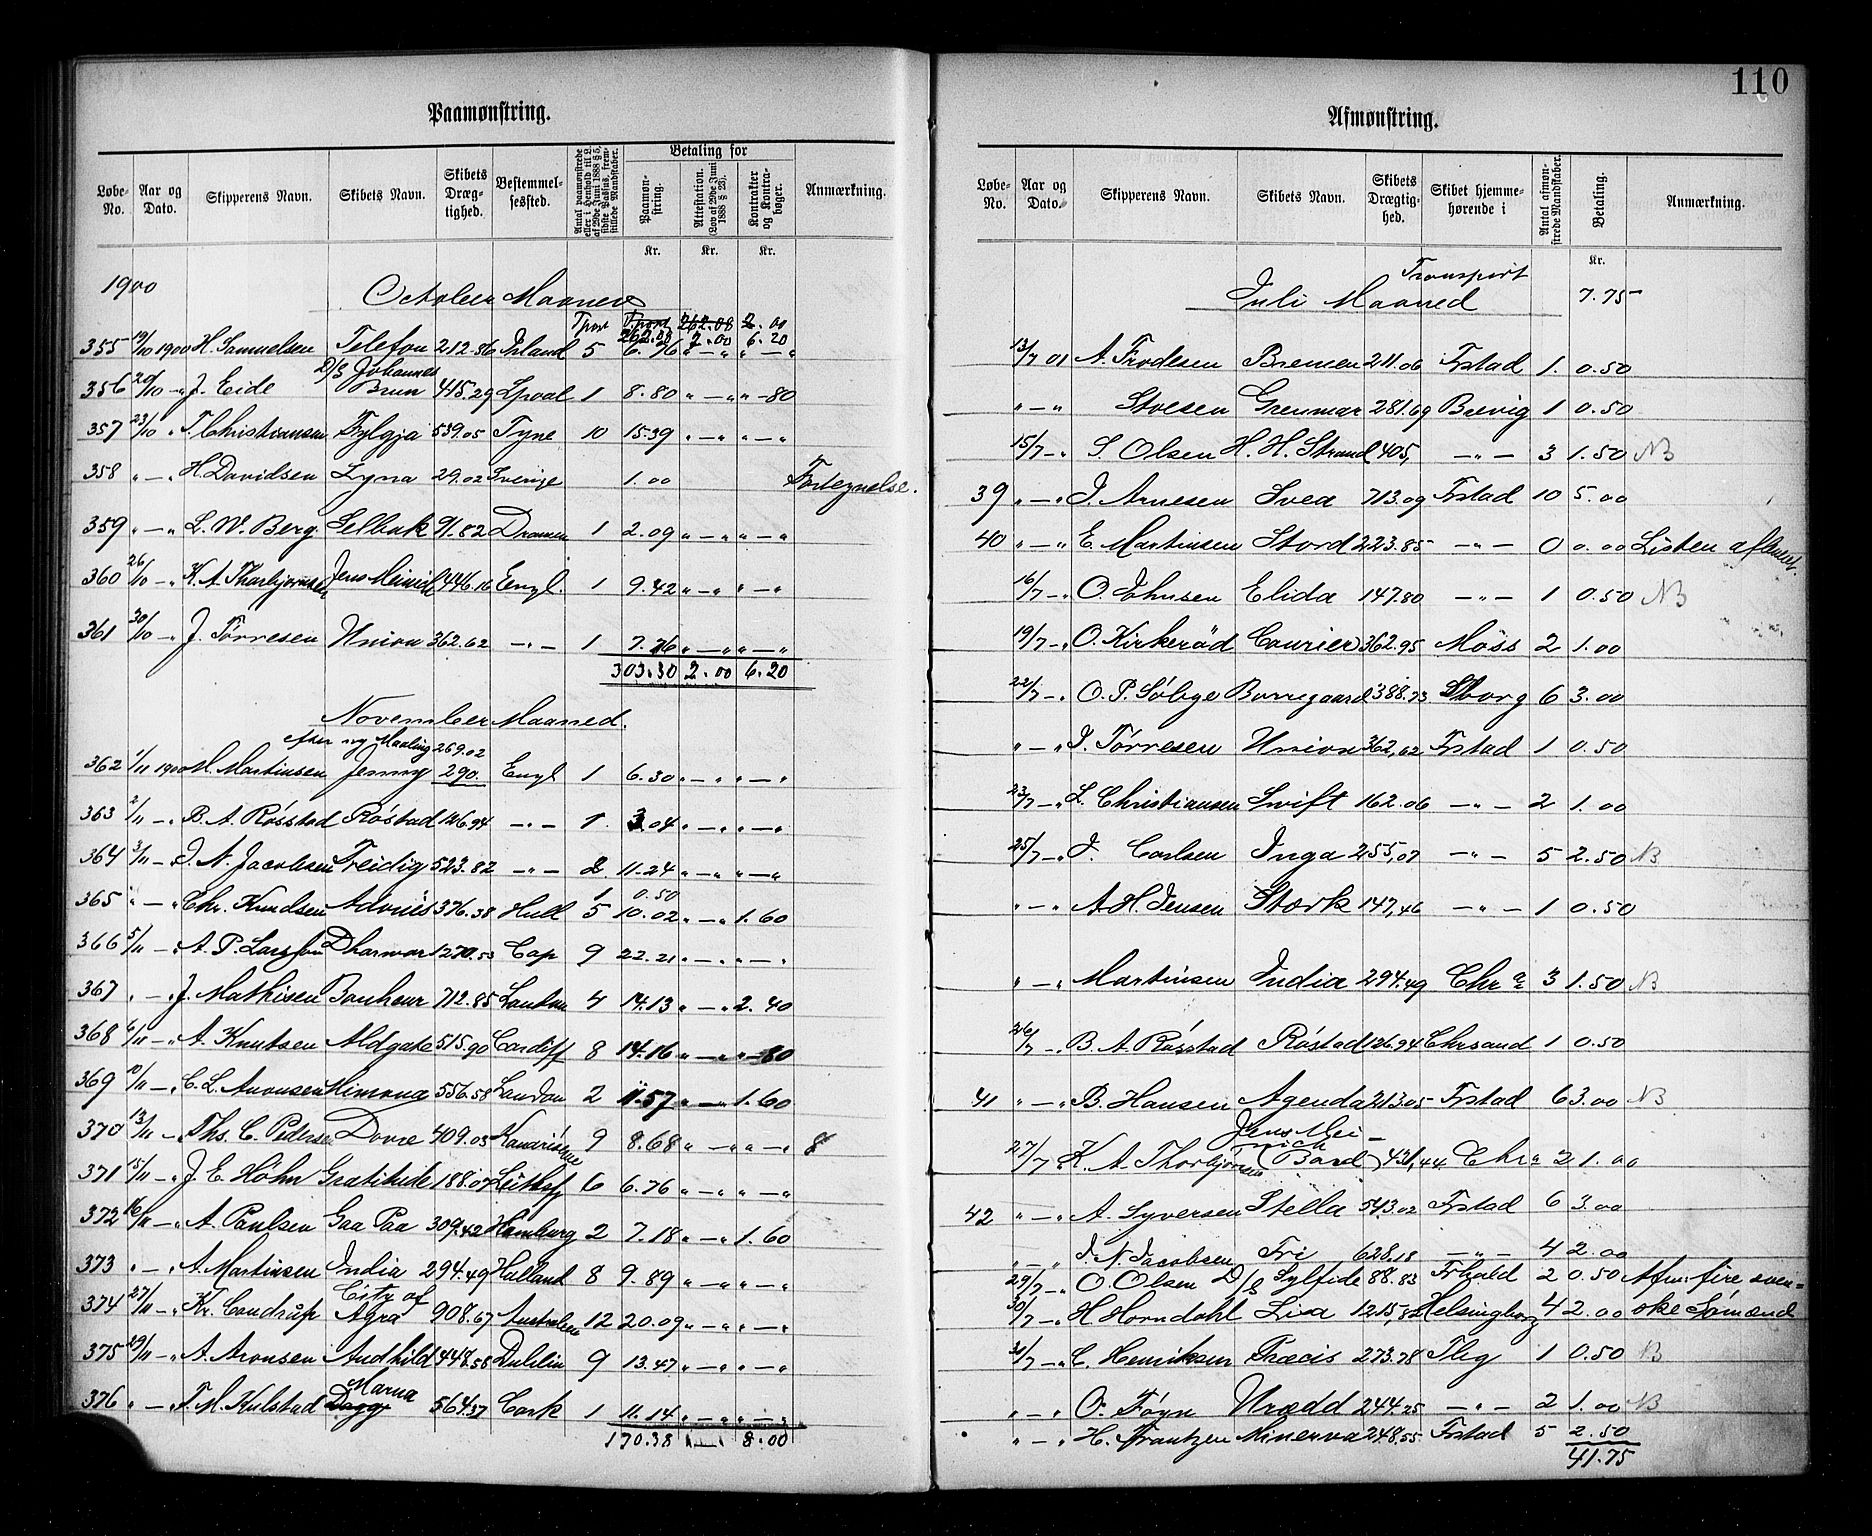 110
Paamønstring.
Løbe-No. Aar og Dato. Skipperens Navn. Skibets Navn. Skibets Dræg-tighed. Bestemmel-sessted. Antal paamønstrede eller i Henhold til L. af 29de Juni 1888 § 5, sidste Passus, frem-stillede Mandskaber. Betaling for Paamøn-string. Attestation. (Lov af 29de Juni 1888 § 23). Kontrakter og Kontra-bøger. Anmærkning.
Kr. Kr. Kr.
1900 October Maaned
Tport 262.08 2.00 6.20
355 19/10 1900 H. Samuelsen Telefon 212.56 Island 5 6.76 " — " " — "
356 20/10 — " J. Eide D/S Johannes Brun 415.29 Lpool 1 8.80 " — " " - 80
357 23/10 " T. Christiansen Fylgja 539.05 Tyne 10 15.39 " — " " — "
358 " — " H. Davidsen Zyna 29.02 Sverige 1.00 Fortegnelse.
359 " — " L. W. Berg Selbak 91.82 Dramen 1 2.09 " — " " — "
360 26/10 — " K. A. Thorbjørnsen Jens Meinich 446.16 Engl. 1 9.42 " — " " — "
361 30/10 — " J. Tørresen Union 362.62 — " — 1 7.76 " — " " — "
303.30 2.00 6.20
November Maaned.
efter ny Maaling 269.02
362 1/11 1900 M. Martinsen Jenny 290. Engl 1 6.30 " — " " — "
363 2/11 — " B. A. Røsstad Röstad 126.94 — " — 1. 3.04 " — " " — "
364 3/11 — " J. N. Jacobsen Freidig 523.82 — " — 2 11.24 " — " " — "
1 0.50
365 " — " Chr. Knudsen Advies 376.38 Hull 5 10.02 " — " 1.60
366 5/11 — " A. P. Larsson Dharwar 1270.53 Cap 9 22.21 " — " " — "
367 " — " J. Mathisen Bonheur 712.85 London 4 14.13 " — " 2.40
368 6/11 — " A. Knutsen Aldgate 515.90 Cardiff 8 14.16 " — " " - 80
369 10/11 — " C. L. Aronsen Himona 556.58 London 2 11.57 " — " 1.60
370 13/11 — " Ths. C. Pedersen Dovre 409.05 9 8.68 " — " " — " 8
371 15/11 — " J. E. Höhn Gratitude 188.07 6 6.76 " — " " — "
372 16/11 — " A. Paulsen Gaa Paa 309.42 Hamburg 2 7.18 " — " 1.60
373 " — " A. Martinsen India 294.49 Holland 8 9.89 " — " " — "
374 27/11 — " Kr. Condrup City of Agra 908.67 Australien 12 20.09 " — " " — "
375 29/11 — " A. Aronsen Audhild 448.58 Dublin 9 13.47 " — " " — "
376 " — " T. M. Kulstad Marna 564.37 Cork 1 11.14 " — " " — "
170.38 " — " 8.00
Afmønstring.
Løbe-No. Aar og Dato. Skipperens Navn. Skibets Navn. Skibets Drægtig-hed. Skibet hjemme-hørende i Antal afmøn-strede Mandskaber. Betaling. Anmærkning.
Kr.
Transport
Juli Maaned 7.75
13/7 01 A. Frodesen Bremen 211.06 Frstad 1. 0.50
" — " Stoesen Grenmar 281.69 Brevig 1 0.50
15/7 — " S. Olsen H. H. Strand 405, — " — 3 1.50 NB
39 " — " J. Arnesen Svea 713.09 Frstad 10 5.00
40 " — " E. Martinsen Stord 223.85 — " — 0 0.00 Listen afleveret.
16/7 — " O. Johnsen Elida 147.80 — " — 1 0.50 NB
19/7 — " O. Kirkeröd Courier 362.95 Moss 2 1.00
22/7 — " O. P. Solnge Borregaard 388.73 Sborg 6 3.00
" — " J. Tørresen Union 362,62 Frstad 1 0.50
23/7 — " L. Christiansen Swift 162.06 — " — 2 1.00
25/7 — " J. Carlsen Inga 255,07 — " — 5 2.50 NB
" — " A. H. Jensen Stærk 147,46 — " — 1 0.50
" — " Martinsen India 294.49 Chr a 3 1.50 NB
26/7 — " B. A. Røsstad Röstad 126.94 Chrsand 1 0.50
41 " — " B. Hansen Agenda 213.05 Frstad 6 3.00 NB
27/7 " K. A. Thorbjørnsen Jens Mei-nich (Bark) 431,44 Chr a 2 1.00
42 " — " A. Syversen Stella 543.02 Frstad 6 3.00
" — " J. N. Jacobsen Fri 628.18 — " — 4 2.00
29/7 — " O. Olsen D/S Sylfide 88.83 Frhald 2 0.50 Afm. fire sven-
30/7 — " H Horndahl Livia 1215,82 Helsingborg 4 2.00 ske Sømænd
31/7 — " C. Henriksen Præcis 273.78 Tbg 1 0.50 NB
" — " O. Föyn Urædd 244.25 — " — 2 1.00 NB
" — " H. Frantzen Minerva 248.55 Frstad 5 2.50
41.75